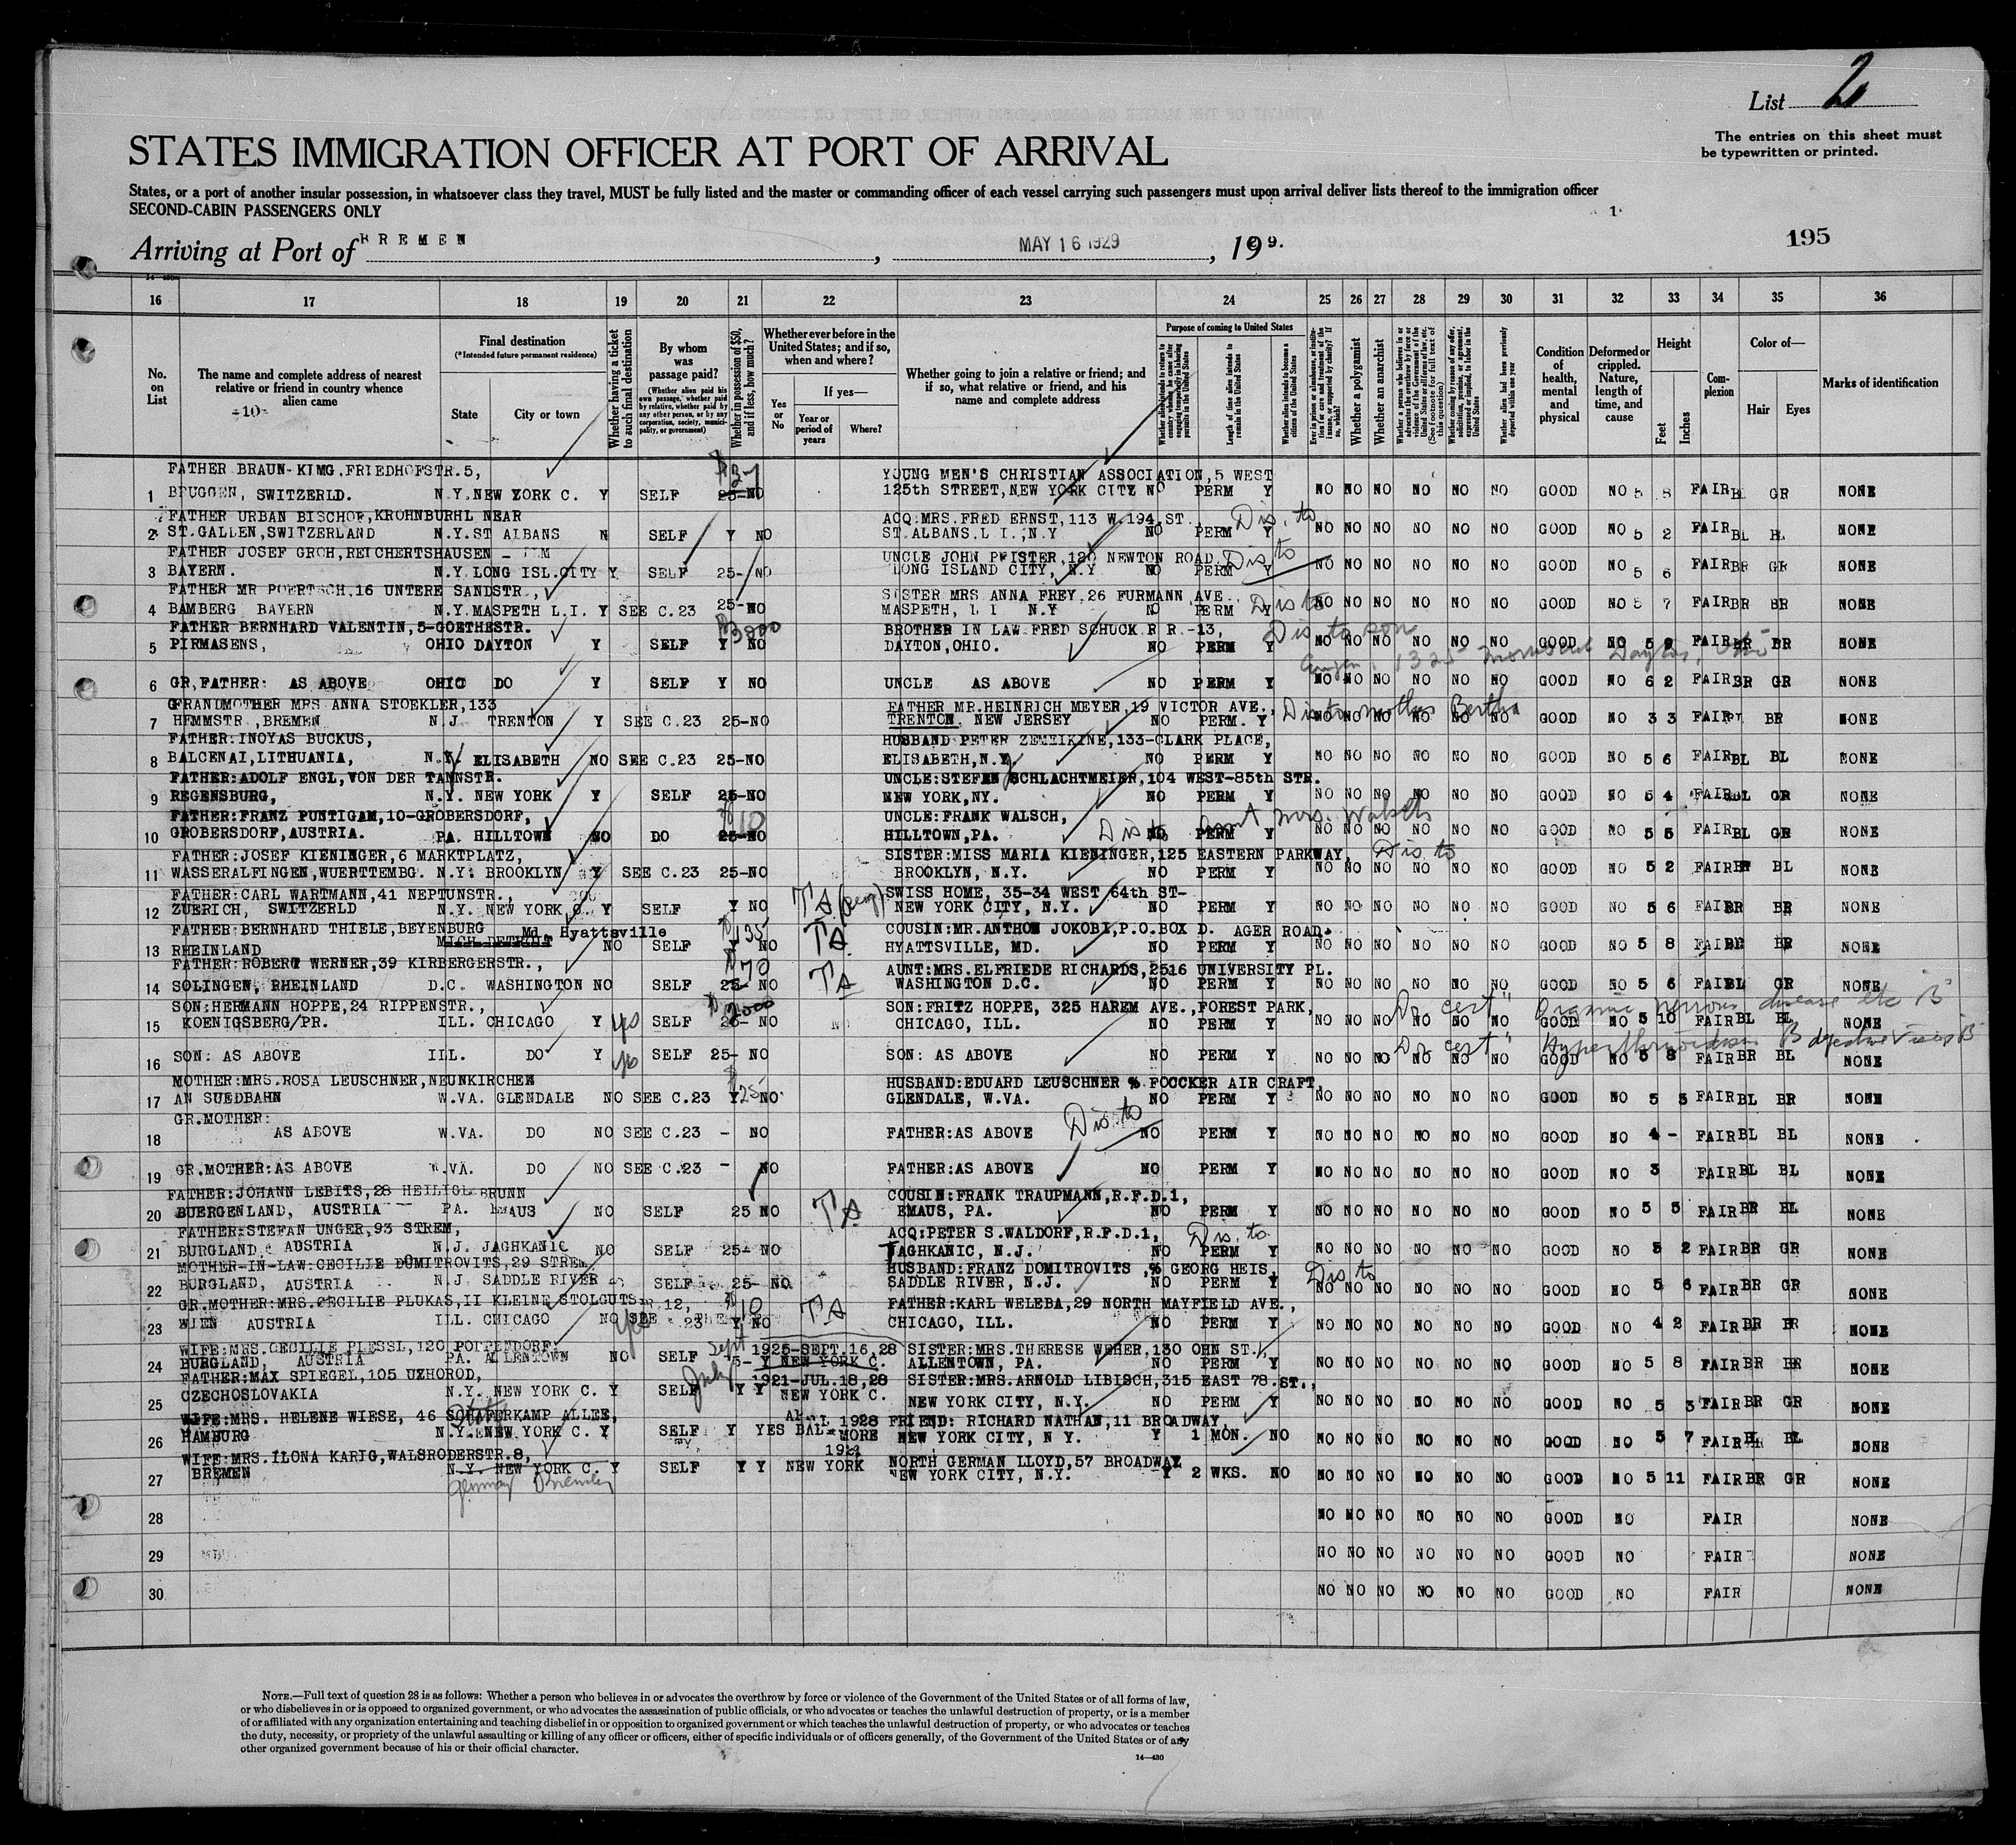 List 2
The entries on this sheet must
be typewritten or printed.
STATES IMMIGRATION OFFICER AT PORT OF ARRIVAL
States, or a port of another insular possession, in whatsoever class they travel, MUST be fully listed and the master or commanding officer of each vessel carrying such passengers must upon arrival deliver lists thereof to the immigration officer
SECOND-CABIN PASSENGERS ONLY
Arriving at Port of BREMEN, MAY 16 1929, 19 9. 195
16 17 18 19 20 21 22 23 24 25 26 27 28 29 30 31 32 33 34 35 36
No. on List
The name and complete address of nearest relative or friend in country whence alien came
-10-
Final destination
(*Intended future permanent residence)
State
City or town
Whether having a ticket to such final destination
By whom was passage paid?
(Whether alien paid his own passage, whether paid by relative, whether paid by any other person, or by any corporation, society, municipality, or government)
Whether in possession of $50, and if less, how much?
Whether ever before in the United States; and if so, when and where?
Yes or No
If yes—
Year or period of years
Where?
Whether going to join a relative or friend; and if so, what relative or friend, and his name and complete address
Purpose of coming to United States
Length of time alien intends to remain in the United States
Whether alien intends to become a citizen of the United States
Whether a polygamist
Whether an anarchist
Whether alien had been previously deported within one year
Condition of health, mental and physical
Deformed or crippled. Nature, length of time, and cause
Height
Feet
Inches
Complexion
Color of—
Hair
Eyes
Marks of identification
FATHER BRAUN-KIMG.FRIEDHOFSTR.5, YOUNG MEN'S CHRISTIAN ASSOCIATION,5 WEST
1 BRUGGEN, SWITZERLD. N.Y.NEW YORK C. Y SELF 25-NO 125th STREET,NEW YORK CITY NO PERM Y NO NO NO NO NO NO GOOD NO 5 8 FAIR BL GR NONE
FATHER URBAN BISCHOF,KROHNBURHL NEAR ACQ:MRS.FRED ERNST,113 W.194.ST. Dis. to
2 ST.GALLEN,SWITZERLAND N.Y.ST ALBANS N SELF Y NO ST.ALBANS.L I.,N.Y NO PERM Y NO NO NO NO NO NO GOOD NO 5 2 FAIR BL BL NONE
FATHER JOSEF GROH,REICHERTSHAUSEN - UNCLE JOHN PFISTER,120 NEWTON ROAD, Dis to
3 BAYERN. N.Y.LONG ISL.CITY Y SELF 25-NO LONG ISLAND CITY, N.Y NO PERM Y NO NO NO NO NO NO GOOD NO 5 6 FAIR BR GR NONE
FATHER MR POERTSCH,16 UNTERE SANDSTR., SISTER MRS ANNA FREY.26 FURMANN AVE.
4 BAMBERG BAYERN N.Y.MASPETH L.I. Y SEE C.23 25-NO MASPETH, L I N.Y NO PERM Y Dis to NO NO NO NO NO NO GOOD NO 5 7 FAIR BR BR NONE
FATHER BERNHARD VALENTIN,5-GOETHESTR. BROTHER IN LAW FRED SCHUCK R R.-13, Dis to son
5 PIRMASENS, OHIO DAYTON Y SELF Y NO DAYTON,OHIO. NO PERM NO NO NO NO NO NO GOOD NO 5 FAIR BR BR NONE
6 GR,FATHER: AS ABOVE OHIO DO Y SELF Y NO UNCLE AS ABOVE NO PERM Y NO NO NO NO NO NO GOOD NO 6 2 FAIR BR GR NONE
GRANDMOTHER MRS ANNA STOEKLER,133 FATHER MR.HEINRICH MEYER,19 VICTOR AVE., Dis to mother Bertha
7 HEMMSTR.,BREMEN N.J. TRENTON Y SEE C.23 25-NO TRENTON. NEW JERSEY NO PERM. Y NO NO NO NO NO NO GOOD NO 3 3 FAIR BR NONE
FATHER:INOYAS BUCKUS, HUSBAND PETER ZEMZIKINE,133-CLARK PLACE,
8 BALCENAI,LITHUANIA, N.Y. ELISABETH NO SEE C.23 25-NO ELISABETH,N.Y. NO PERM Y NO NO NO NO NO NO GOOD NO 5 6 FAIR BL BL NONE
FATHER:ADOLF ENGL,VON DER TANNSTR. UNCLE:STEFAN SCHLACHTMEIER,104 WEST-85th STR.
9 REGENSBURG, N.Y. NEW YORK Y SELF 25-NO NEW YORK,NY. NO PERM Y NO NO NO NO NO NO GOOD NO 5 4 FAIR BL GR NONE
FATHER:FRANZ PUNTIGAM,10-GROBERSDORF, UNCLE:FRANK WALSCH,
10 GROBERSDORF,AUSTRIA. PA. HILLTOWN NO DO 25-NO HILLTOWN,PA. Dis to aunt Mrs. Walsch NO PERM Y NO NO NO NO NO NO GOOD NO 5 5 FAIR BL GR NONE
FATHER:JOSEF KIENINGER,6 MARKTPLATZ, SISTER:MISS MARIA KIENINGER,125 EASTERN PARKWAY, Dis to
11 WASSERALFINGEN,WUERTTEMBG. N.Y. BROOKLYN Y SEE C.23 25-NO BROOKLYN, N.Y. NO PERM Y NO NO NO NO NO NO GOOD NO 5 2 FAIR BR BL NONE
FATHER:CARL WARTMANN,41 NEPTUNSTR., SWISS HOME, 35-34 WEST 64th ST-
12 ZUERICH, SWITZERLD N.Y. NEW YORK C. Y SELF Y NO TA NEW YORK CITY, N.Y. NO PERM Y NO NO NO NO NO NO GOOD NO 5 6 FAIR BR BR NONE
FATHER:BERNHARD THIELE,BEYENBURG Md. Hyattsville COUSIN:MR.ANTHON JOKOBI,P.O.BOX D. AGER ROAD.
13 RHEINLAND MICH.DETROIT NO SELF Y NO 135 TA HYATTSVILLE, MD. NO PERM Y NO NO NO NO NO NO GOOD NO 5 8 FAIR BR BR NONE
FATHER:ROBERT WERNER,39 KIRBERGERSTR., AUNT:MRS.ELFRIEDE RICHARDS,2516 UNIVERSITY PL.
14 SOLINGEN, RHEINLAND D.C. WASHINGTON NO SELF 25- NO 70 TA WASHINGTON D.C. NO PERM Y NO NO NO NO NO NO GOOD NO 5 6 FAIR BL GR NONE
SON:HERMANN HOPPE,24 RIPPENSTR., SON:FRITZ HOPPE, 325 HAREM AVE.,FOREST PARK, Dr cert" Organic nervous disease etc B
15 KOENIGSBERG/PR. ILL. CHICAGO Y yes SELF 25- NO CHICAGO, ILL. NO PERM Y NO NO NO NO NO NO GOOD NO 5 10 FAIR BL BL NONE
16 SON: AS ABOVE ILL. DO Y yes SELF 25- NO SON: AS ABOVE NO PERM Y NO NO NO NO NO NO GOOD NO 5 8 FAIR BR BL NONE
MOTHER:MRS.ROSA LEUSCHNER,NEUNKIRCHEN HUSBAND:EDUARD LEUSCHNER % FOCCKER AIR CRAFT,
17 AN SUEDBAHN W.VA. GLENDALE NO SEE C.23 Y NO 25 GLENDALE, W.VA. NO PERM Y NO NO NO NO NO NO GOOD NO 5 5 FAIR BL BR NONE
GR.MOTHER:
18 AS ABOVE W.VA. DO NO SEE C.23 - NO FATHER:AS ABOVE Dis. to NO PERM Y NO NO NO NO NO NO GOOD NO 4 - FAIR BL BL NONE
19 GR.MOTHER:AS ABOVE W.VA. DO NO SEE C.23 - NO FATHER:AS ABOVE NO PERM Y NO NO NO NO NO NO GOOD NO 3 FAIR BL BL NONE
FATHER:JOHANN LEBITS,28 HEILIGENBRUNN COUSIN:FRANK TRAUPMANN,R.F.D.1,
20 BUERGENLAND, AUSTRIA PA. EMAUS NO SELF 25 NO TA EMAUS, PA. NO PERM Y NO NO NO NO NO NO GOOD NO 5 5 FAIR BR BL NONE
FATHER:STEFAN UNGER,93 STREM, ACQ:PETER S.WALDORF,R.F.D.1, Dis. to
21 BURGLAND, AUSTRIA N.J. JAGHKANIC NO SELF 25- NO JAGHKANIC, N.J. NO PERM Y NO NO NO NO NO NO GOOD NO 5 2 FAIR BR GR NONE
MOTHER-IN-LAW:CECILIE DOMITROVITS,29 STREM HUSBAND:FRANZ DOMITROVITS ,% GEORG HEIS, Dis to
22 BURGLAND, AUSTRIA N.J. SADDLE RIVER SELF 25- NO SADDLE RIVER, N.J. NO PERM Y NO NO NO NO NO NO GOOD NO 5 6 FAIR BR GR NONE
GR.MOTHER:MRS.CECILIE PLUKAS,II KLEINE STOLGUTSTR.12, FATHER:KARL WELEBA,29 NORTH MAYFIELD AVE.,
23 WIEN AUSTRIA ILL. CHICAGO NO yes SEE 23 Y NO 10 TA CHICAGO, ILL. NO PERM Y NO NO NO NO NO NO GOOD NO 4 2 FAIR BR BR NONE
WIFE:MRS.CECILIE PLESSL,120 POPPENDORF, Sept 1925-SEPT.16,28 SISTER:MRS.THERESE WEHER,130 OHN ST.,
24 BURGLAND, AUSTRIA PA. ALLENTOWN NO SELF Y NEW YORK C. ALLENTOWN, PA. NO PERM Y NO NO NO NO NO NO GOOD NO 5 8 FAIR BR BR NONE
FATHER:MAX SPIEGEL,105 UZHOROD, July 1921-JUL.18,28 SISTER:MRS.ARNOLD LIBISCH,315 EAST 78.ST.,
25 CZECHOSLOVAKIA N.Y. NEW YORK C. Y SELF Y Y NEW YORK C. NEW YORK CITY, N.Y. NO PERM Y NO NO NO NO NO NO GOOD NO 5 3 FAIR BR GR NONE
WIFE:MRS. HELENE WIESE, 46 SCHAFERKAMP ALLEE, APRIL 1928 FRIEND: RICHARD NATHAN,11 BROADWAY,
26 HAMBURG N.Y. NEW YORK C. Y SELF Y YES BALTIMORE NEW YORK CITY, N Y. Y 1 MON. NO NO NO NO NO NO NO GOOD NO 5 7 FAIR BL BL NONE
WIFE:MRS.ILONA KARIG,WALSRODERSTR.8, NORTH GERMAN LLOYD,57 BROADWAY
27 BREMEN N.Y. NEW YORK C. Y SELF Y Y NEW YORK NEW YORK CITY, N.Y. Y 2 WKS. NO NO NO NO NO NO NO GOOD NO 5 11 FAIR BR GR NONE
Germany Bremen
28 NO NO NO NO NO NO GOOD NO FAIR NONE
29 NO NO NO NO NO NO GOOD NO FAIR NONE
30 NO NO NO NO NO NO GOOD NO FAIR NONE
NOTE.—Full text of question 28 is as follows: Whether a person who believes in or advocates the overthrow by force or violence of the Government of the United States or of all forms of law,
or who disbelieves in or is opposed to organized government, or who advocates the assassination of public officials, or who advocates or teaches the unlawful destruction of property, or is a member
of or affiliated with any organization entertaining and teaching disbelief in or opposition to organized government or which teaches the unlawful destruction of property, or who advocates or teaches
the duty, necessity, or propriety of the unlawful assaulting or killing of any officer or officers, either of specific individuals or of officers generally, of the Government of the United States or of any
other organized government because of his or their official character.
14—430